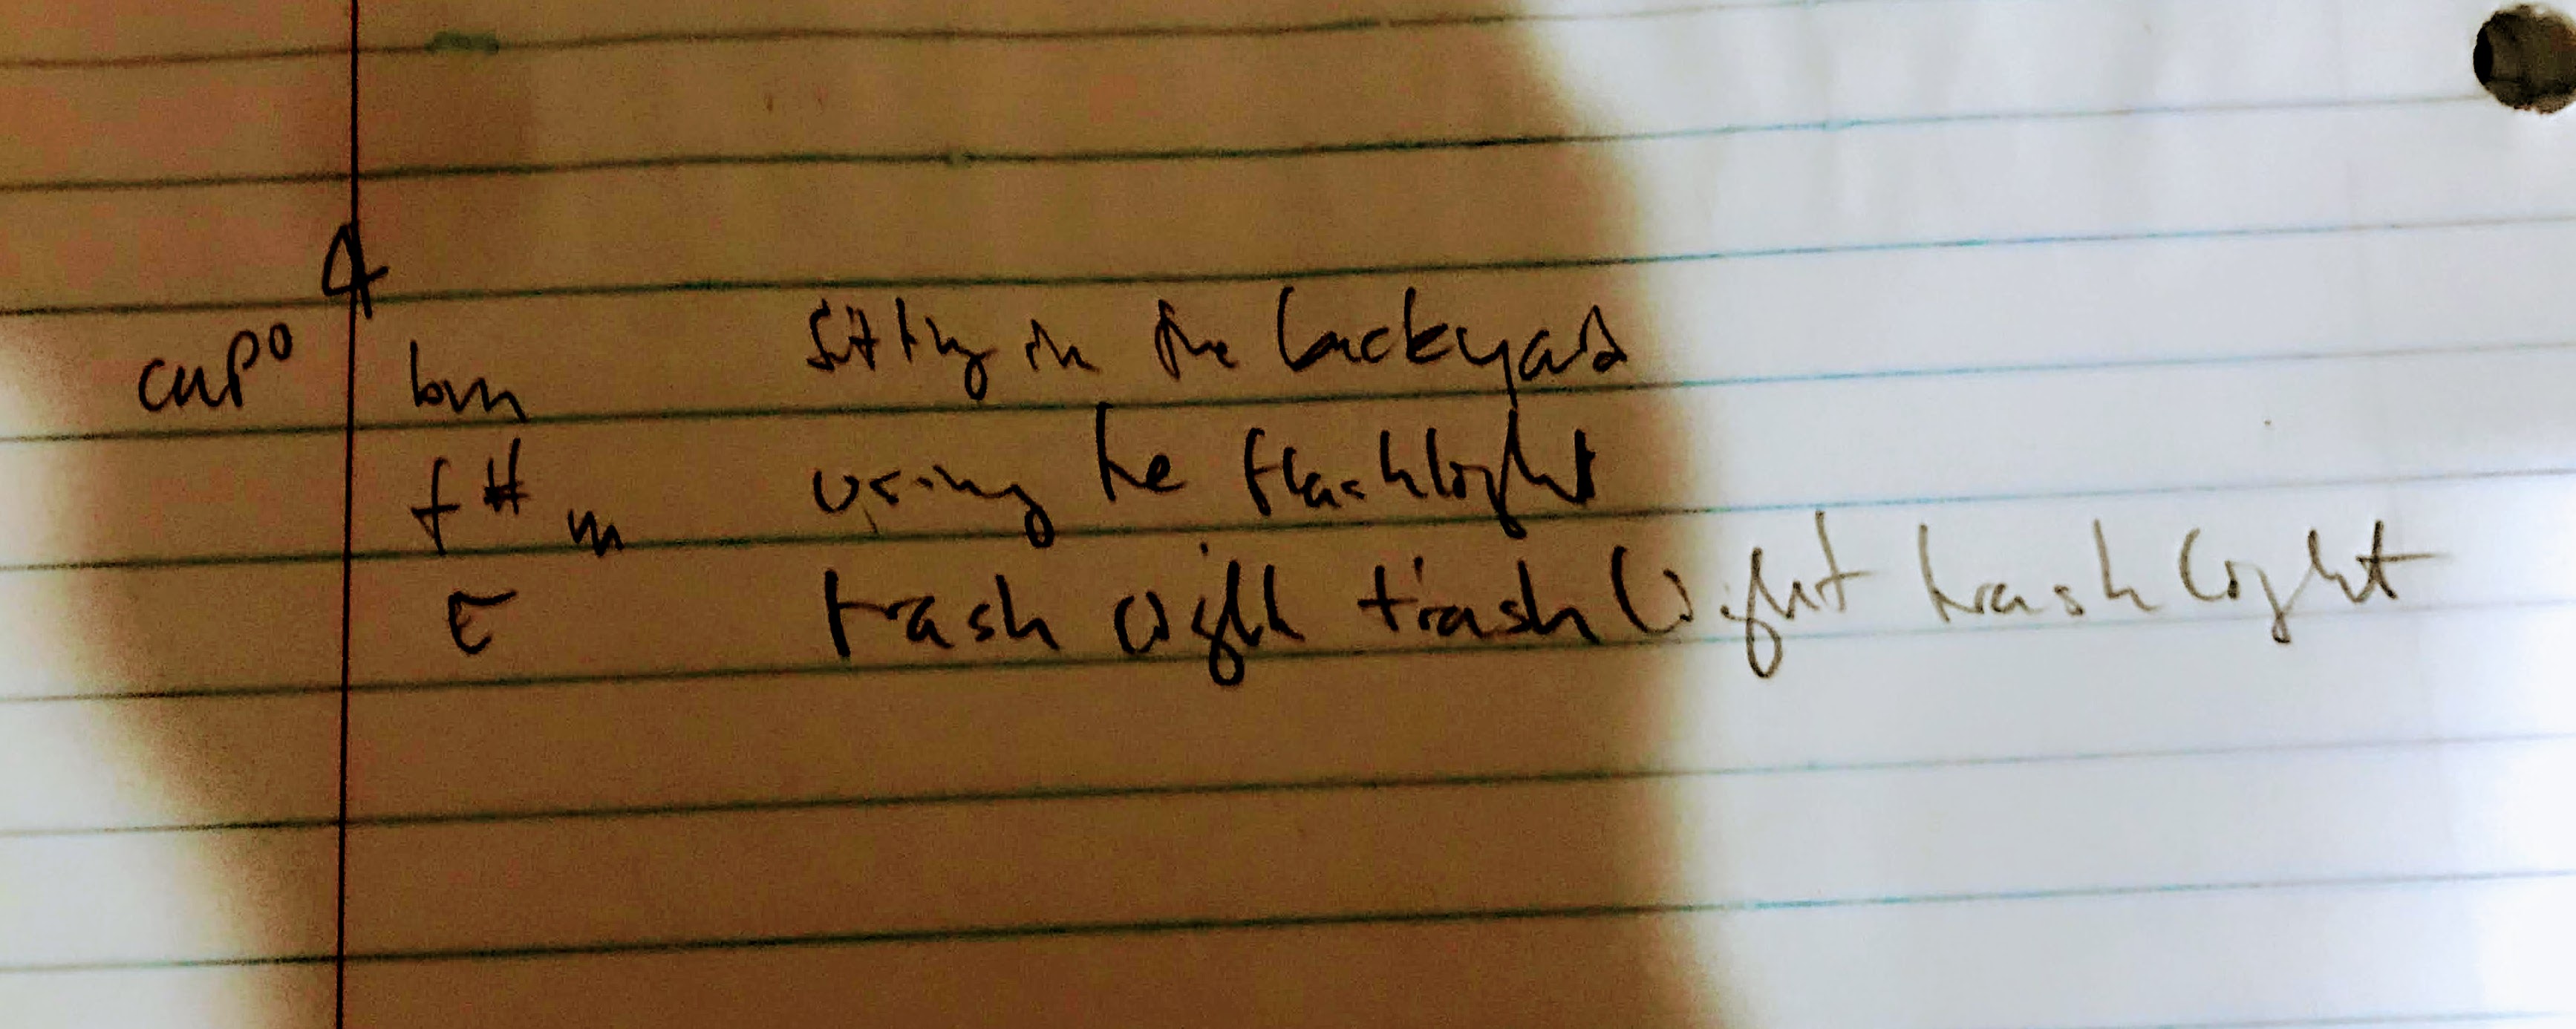 4
capo bm sitting in the backyard
f#m using he flashlight
E trash light trash light trash light